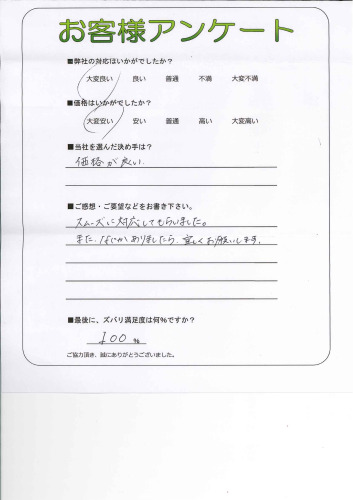 お客様アンケート
■弊社の対応はいかがでしたか?
大変良い 良い 普通 不満 大変不満
■価格はいかがでしたか?
大変安い 安い 普通 高い 大変高い
■当社を選んだ決め手は?
価格が良い。
■ご感想・ご要望などをお書き下さい。
スムーズに対応してもらいました。
また、なにかありましたら、宜しくお願いします。
■最後に、ズバリ満足度は何%ですか?
100 %
ご協力頂き、誠にありがとうございました。